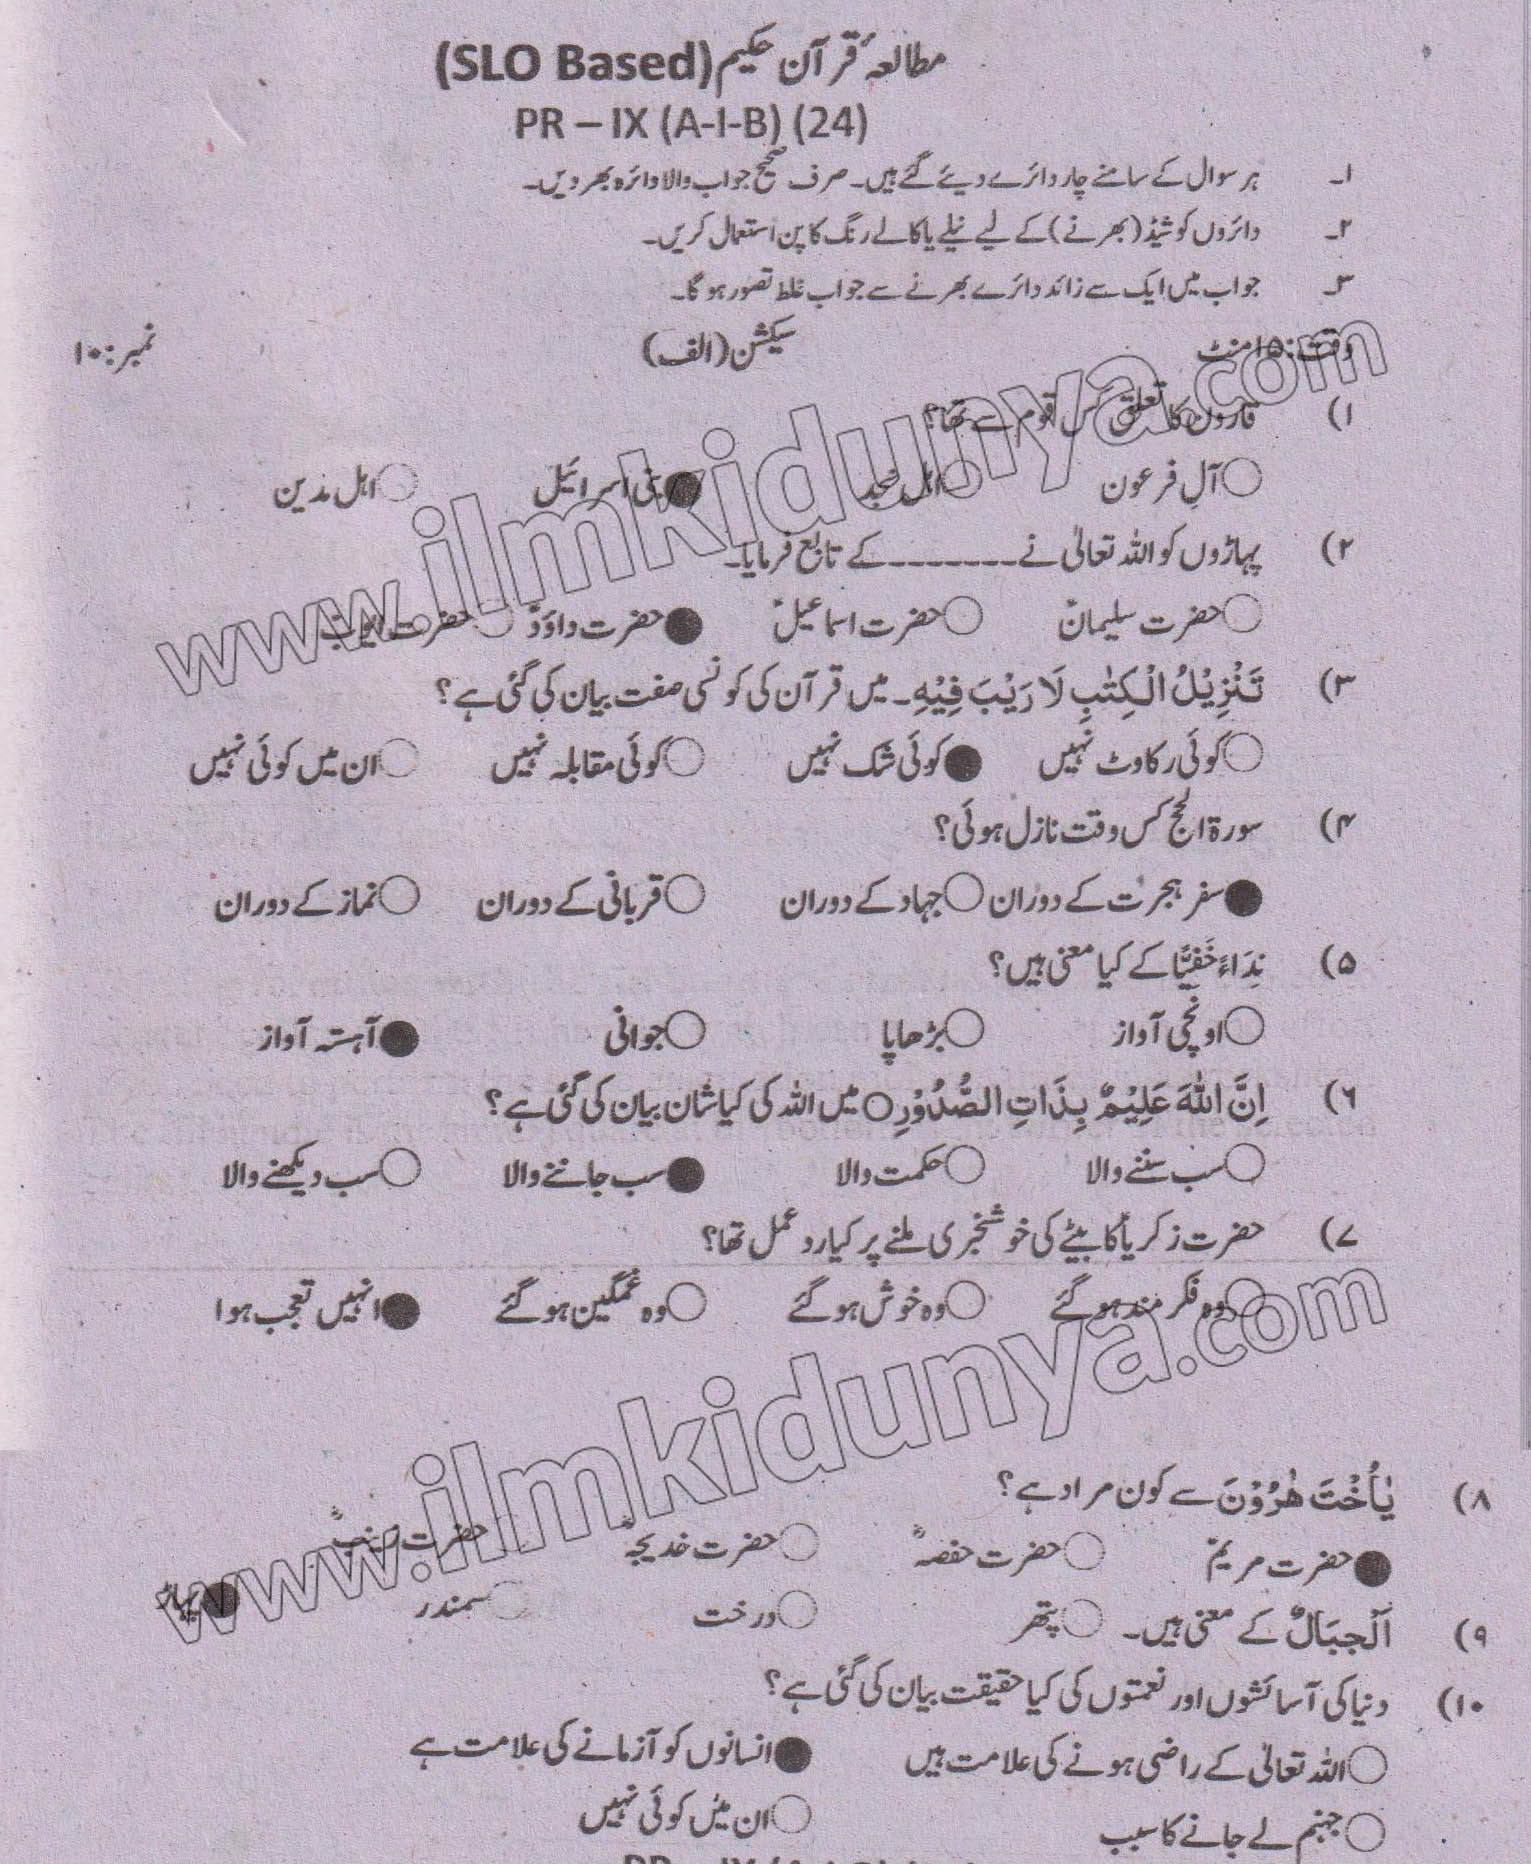 مطالعۂ قرآن حکیم (SLO Based)
PR – IX (A-I-B) (24)
۱۔ ہر سوال کے سامنے چار دائرے دیئے گئے ہیں۔ صرف صحیح جواب والا دائرہ بھر دیں۔
۲۔ دائروں کو شیڈ (بھرنے) کے لیے نیلے یا کالے رنگ کا پن استعمال کریں۔
۳۔ جواب میں ایک سے زائد دائرے بھرنے سے جواب غلط تصور ہو گا۔
وقت: ۱۵ منٹ سیکشن (الف) نمبر: ۱۰
۱) قارون کا تعلق کس قوم سے تھا؟
○ آلِ فرعون ○ اہل نجد ● بنی اسرائیل ○ اہل مدین
۲) پہاڑوں کو اللہ تعالیٰ نے ------- کے تابع فرمایا۔
○ حضرت سلیمانؑ ○ حضرت اسماعیلؑ ● حضرت داؤدؑ ○ حضرت ایوبؑ
۳) تَنْزِیْلُ الْکِتٰبِ لَا رَیْبَ فِیْهِ۔ میں قرآن کی کونسی صفت بیان کی گئی ہے؟
○ کوئی رکاوٹ نہیں ● کوئی شک نہیں ○ کوئی مقابلہ نہیں ○ ان میں کوئی نہیں
۴) سورۃ الحج کس وقت نازل ہوئی؟
● سفر ہجرت کے دوران ○ جہاد کے دوران ○ قربانی کے دوران ○ نماز کے دوران
۵) نِدَاءً خَفِیًّا کے کیا معنی ہیں؟
○ اونچی آواز ○ بڑھاپا ○ جوانی ● آہستہ آواز
۶) اِنَّ اللّٰهَ عَلِیْمٌ بِذَاتِ الصُّدُوْرِ○ میں اللہ کی کیا شان بیان کی گئی ہے؟
○ سب سننے والا ○ حکمت والا ● سب جاننے والا ○ سب دیکھنے والا
۷) حضرت زکریاؑ کا بیٹے کی خوشخبری ملنے پر کیا ردعمل تھا؟
○ وہ فکر مند ہو گئے ○ وہ خوش ہو گئے ○ وہ غمگین ہو گئے ● انہیں تعجب ہوا
۸) یٰاُخْتَ هٰرُوْنَ سے کون مراد ہے؟
● حضرت مریمؑ ○ حضرت حفصہؓ ○ حضرت خدیجہؓ ○ حضرت زینبؓ
۹) اَلْجِبَالُ کے معنی ہیں۔ ○ پتھر ○ درخت ○ سمندر ● پہاڑ
۱۰) دنیا کی آسائشوں اور نعمتوں کی کیا حقیقت بیان کی گئی ہے؟
○ اللہ تعالیٰ کے راضی ہونے کی علامت ہیں ● انسانوں کو آزمانے کی علامت ہے
○ جہنم لے جانے کا سبب ○ ان میں کوئی نہیں
www.ilmkidunya.com
www.ilmkidunya.com